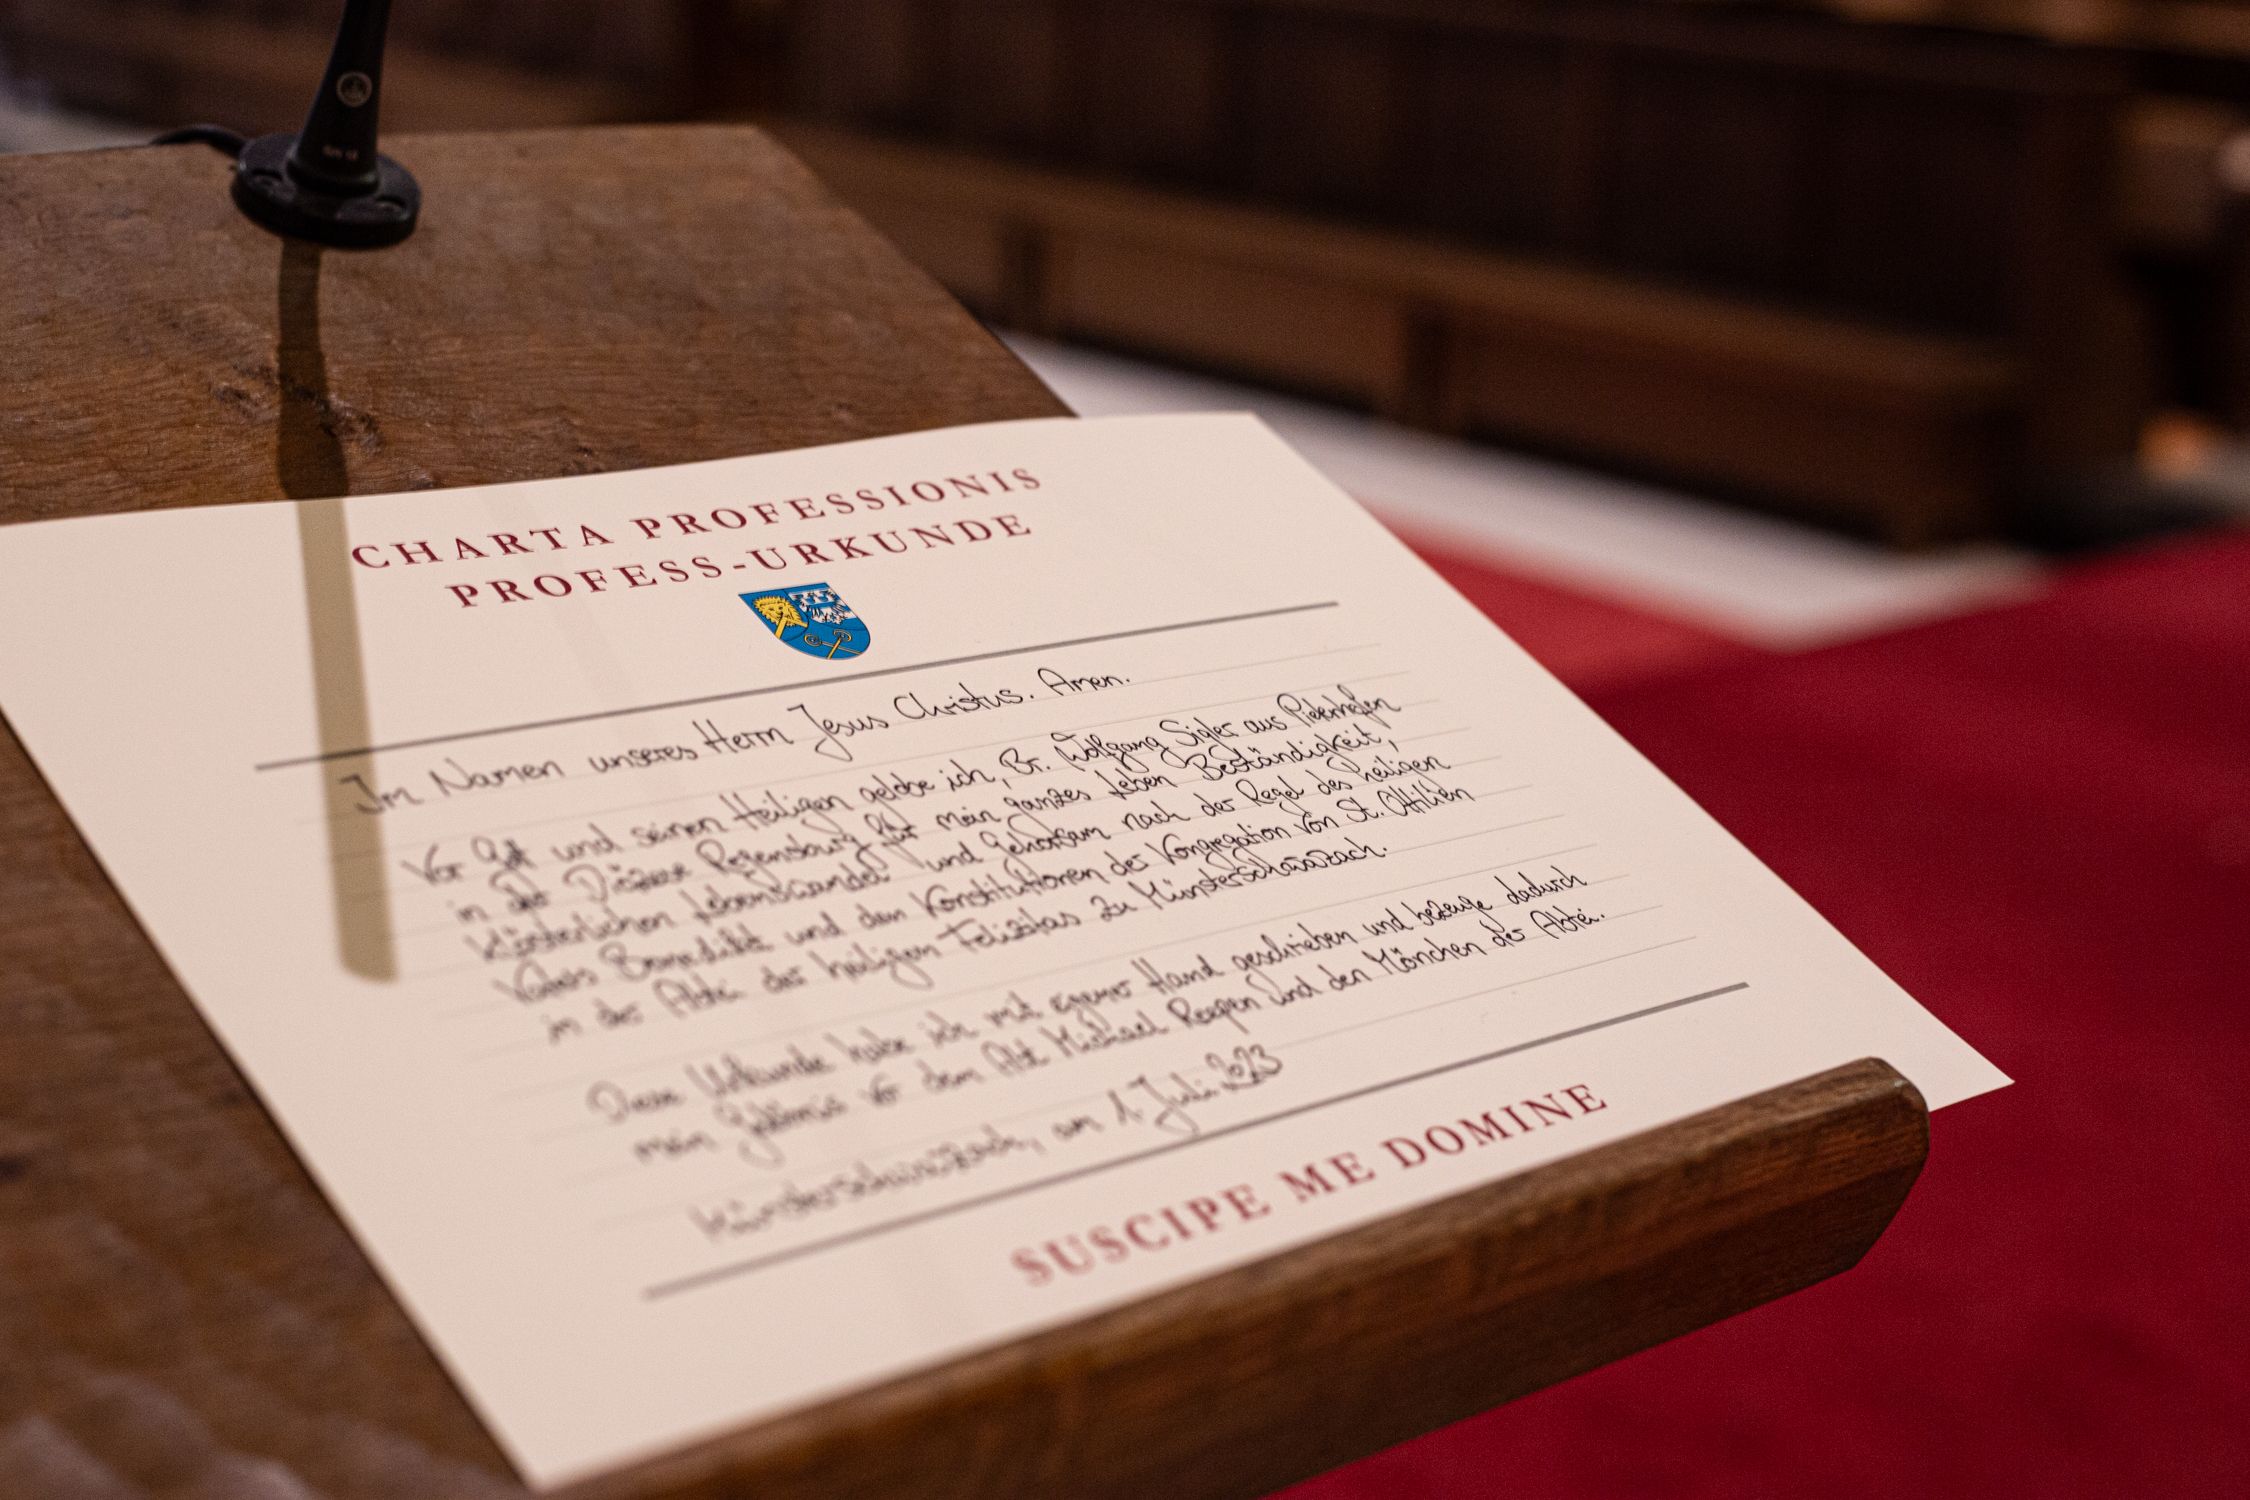 CHARTA PROFESSIONIS
PROFESS-URKUNDE
Im Namen unseres Herrn Jesus Christus. Amen.
Vor Gott und seinen Heiligen gelobe ich, Br. Wolfgang Sigler aus Pielenhofen
in der Diözese Regensburg für mein ganzes Leben Beständigkeit,
klösterlichen Lebenswandel und Gehorsam nach der Regel des heiligen
Vaters Benedikt und den Konstitutionen der Kongregation von St. Ottilien
in der Abtei der heiligen Felizitas zu Münsterschwarzach.
Diese Urkunde habe ich mit eigener Hand geschrieben und bezeuge dadurch
mein Gelöbnis vor dem Abt Michael Reepen und den Mönchen der Abtei.
Münsterschwarzach, am 1. Juli 2023
SUSCIPE ME DOMINE